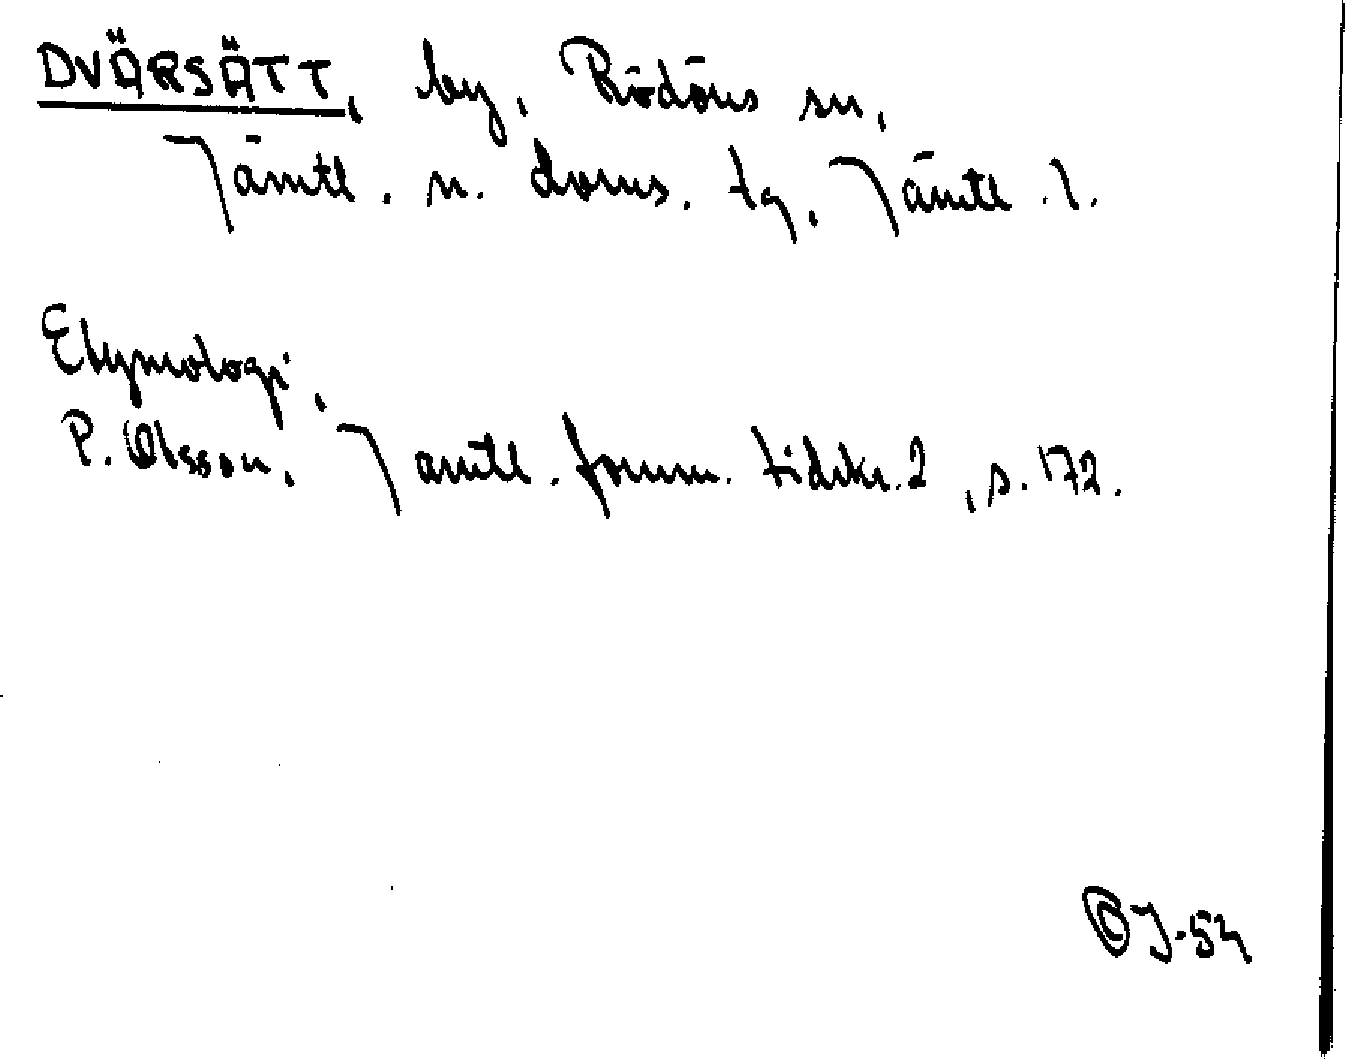 DVÄRSÄTT, by, Rödöns sn,
Jämtl. n. doms. tg, Jämtl. l.
Etymologi,
P. Olsson, Jämtl. fornm. tidskr. 2, s. 172.
OJ-54